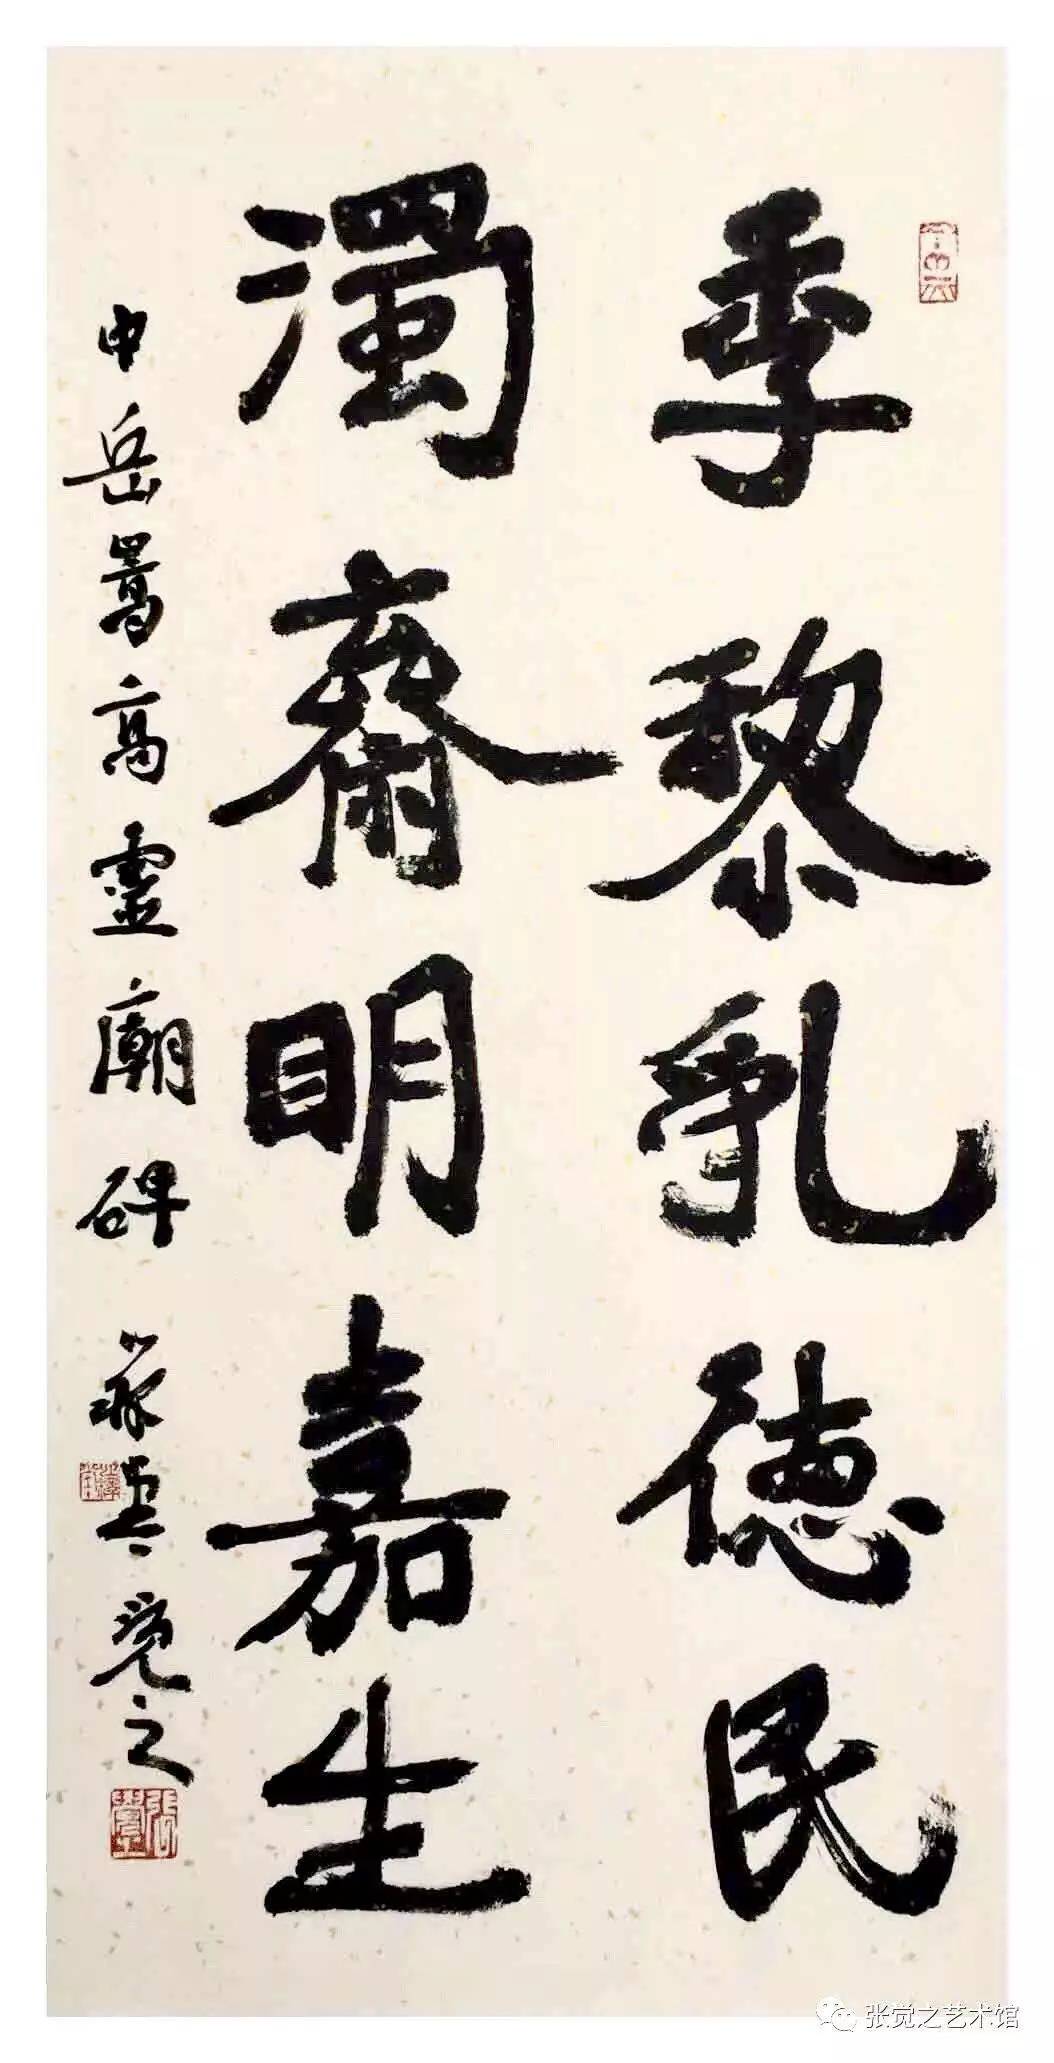 季黎亂德民
濁齋明嘉生
中岳嵩高靈廟碑 覺之
张觉之艺术馆